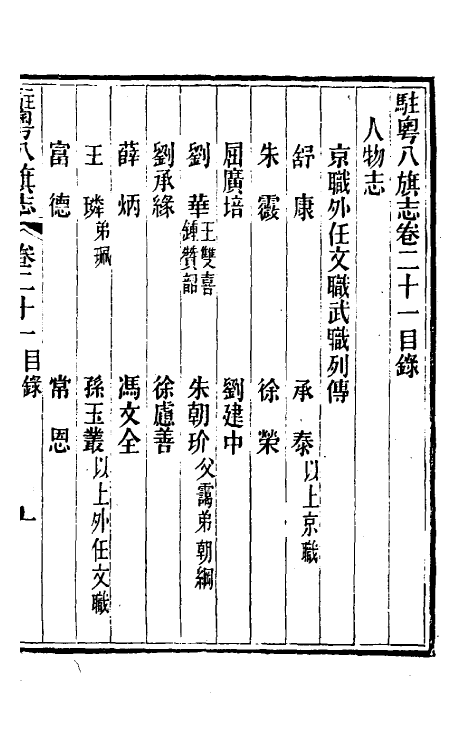 駐粵八旗志卷二十一目錄
人物志
京職外任文職武職列傳
舒康 承泰以上京職
朱霞 徐榮
屈廣培 劉建中
劉華王雙喜鍾贊韶 朱朝玠父靄弟朝綱
劉承緣 徐慮善
薛炳 馮文全
王璘弟珮 孫玉叢以上外任文職
富德 常恩
駐粵八旗志 卷二十一目錄